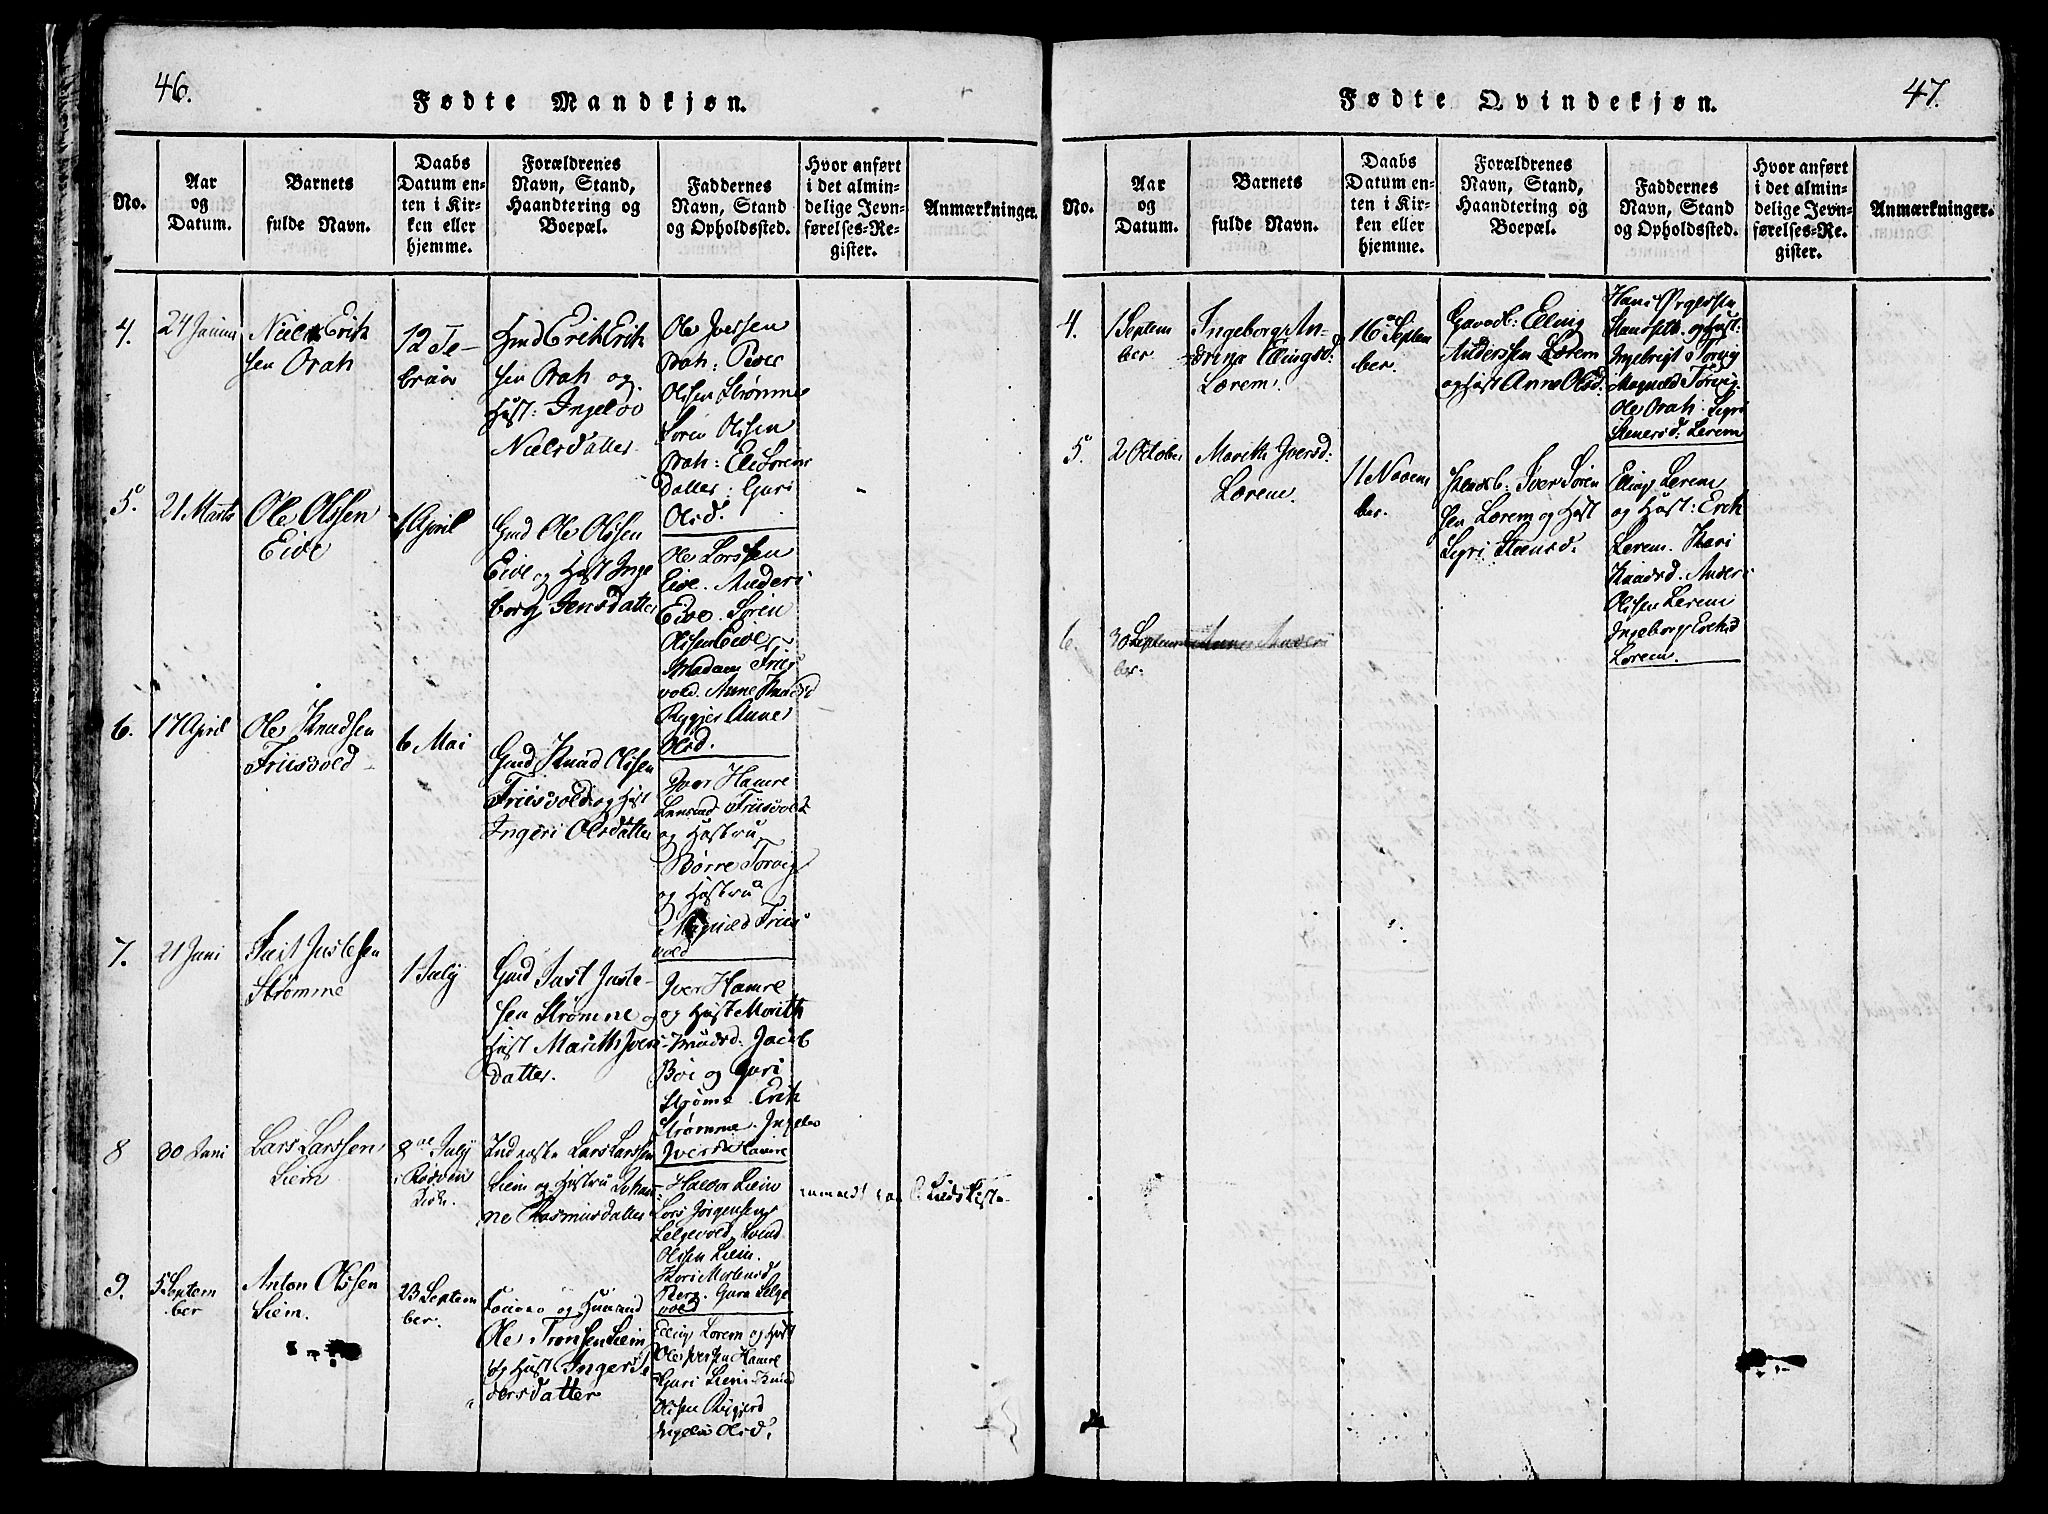 46.
Fødte Mandkjøn.
No.
Aar
og
Datum.
Barnets
fulde Navn.
Daabs
Datum en-
ten i Kir-
ken eller
hjemme.
Forældrenes
Navn, Stand,
Haandtering og
Boepæl.
Faddernes
Navn, Stand
og Opholdssted.
Hvor anført
i det almin-
delige Jevn-
førelses-Re-
gister.
Anmærkninger.
4.
24 Januar
Niels Erik
sen Orah
12 Fe-
bruar
Gmd Erik Erik
sen Orah og
Hust: Ingebor
Nielsdatter.
Ole Iversen
Orah: Peder
Olssen Strømme
Søren Olssen
Orah: Eli Sørens
datter: Guri
Olsd.
5.
21 Marts
Ole Olssen
Eive
1 April
Gmd Ole Olssen
Eive og Hust Inge
borg Jensdatter
Ole Larssen
Eive. Anders
Eive. Søren
Olssen Eive
Madam Friis
vold. Anne Knudsd
Rygjer Anne
Olsd.
6.
17 April
Ole Knudsen
Friisvold
6 Mai
Gmd Knud Olssen
Friisvold og Hust
Ingeri Olsdatter
Iver Hamre
Friisvold
og Hustru
Børre Torvig
og Hustru
Magnild Friis
vold
7.
21 Juni
Just Justesen
Strømme
1 July
Gmd Just Juste-
sen Strømme og
Hust Marith Ivers
datter.
Iver Hamre
og Hust Marith
Knudsd. Jacob
Boe og Guri
Strømme Erik
Strømme. Ingebor
Iversd Hamre
8
30 Juni
Lars Larssen
Liem
8de July
i Rødven
Kirke.
Inderste Lars Larssen
Liem og Hustru Johan-
ne Rasmusdatter
Haldor Liem
Lars Jørgensen
Selgevold, Svend
Olssen Liem.
Kari Mortensd
Berg. Guru Selge
vold
9.
5 Septem
ber
Anton Olssen
Liem.
23 Septem
ber.
og Huusmand
Ole Tronsen Liem
og Hust Inger Pe
dersdatter
Elling Lerem og Hust
Ole Iversen Hamre
Guri Liem Knud
Olssen Rygjerd
Ingebor Olsd.
47.
Fødte Qvindekjøn.
No.
Aar
og
Datum.
Barnets
fulde Navn.
Daabs
Datum en-
ten i Kir-
ken eller
hjemme.
Forældrenes
Navn, Stand,
Haandtering og
Boepæl.
Faddernes
Navn, Stand
og Opholdssted.
Hvor anført
i det almin-
delige Jevn-
førelses-Re-
gister.
Anmærkninger.
4.
1 Septem
ber
Ingeborg An-
drina Ellingsd:
Lærem.
16 Septem
ber.
Gaardb: Elling
Anderssen Lærem
og Hust Anne Olsd:
Hans Ørgessen
og Hust:
Ingebrigt Torvig
Magnild Torvig.
Ole Orah. Sigri
Stenersd: Lerem
5.
2 October
Marith Iversd:
Lærem.
11 Novem
ber.
Iver Søren
sen Lærem og Hust
Sigri Steensd.
Elling Lerem
og Hust: Erik
Lerem. Kari
Knudsd. Anders
Olssen Lerem
Ingeborg Eriksd
Lerem.
6.
30 Septem
ber.
Anne Anders